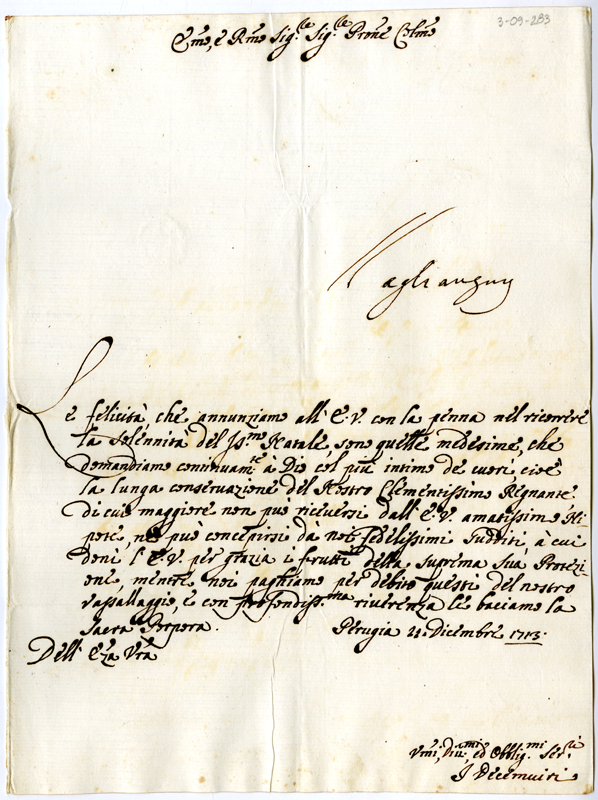 3-09-283
Em̃o, e Rm̃o Sig.re Sig.re Prone Colmo
agli auguri
Le felicità, che annunziamo all'E.V. con la penna nel ricorrere
la solennità del Ss.mo Natale, sono quelle medesime, che
domandiamo continuam.te à Dio col più intimo de cuori, cioè
la lunga conservazione del Nostro Clementissimo Regnante.
Di cui maggiore non può riceversi dall'E.V. amatissimo Ni-
pote, ne può concepirsi dà noi fedelissimi sudditi, a cui
doni l'E.V. per grazia i frutti della suprema sua Protezi-
one, mentre noi paghiamo per debito questi del nostro
vassallaggio, e con profondiss.ma riverenza le baciamo la
Sacra Porpora. Perugia 21. Dicembre 1713.
Dell'Eza Vra
Vmi, Diu.mi ed Obblig.mi Ser.ri
I Decemviri